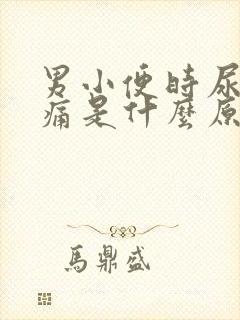 男小便時尿
痛是什麼原
馬鼎盛